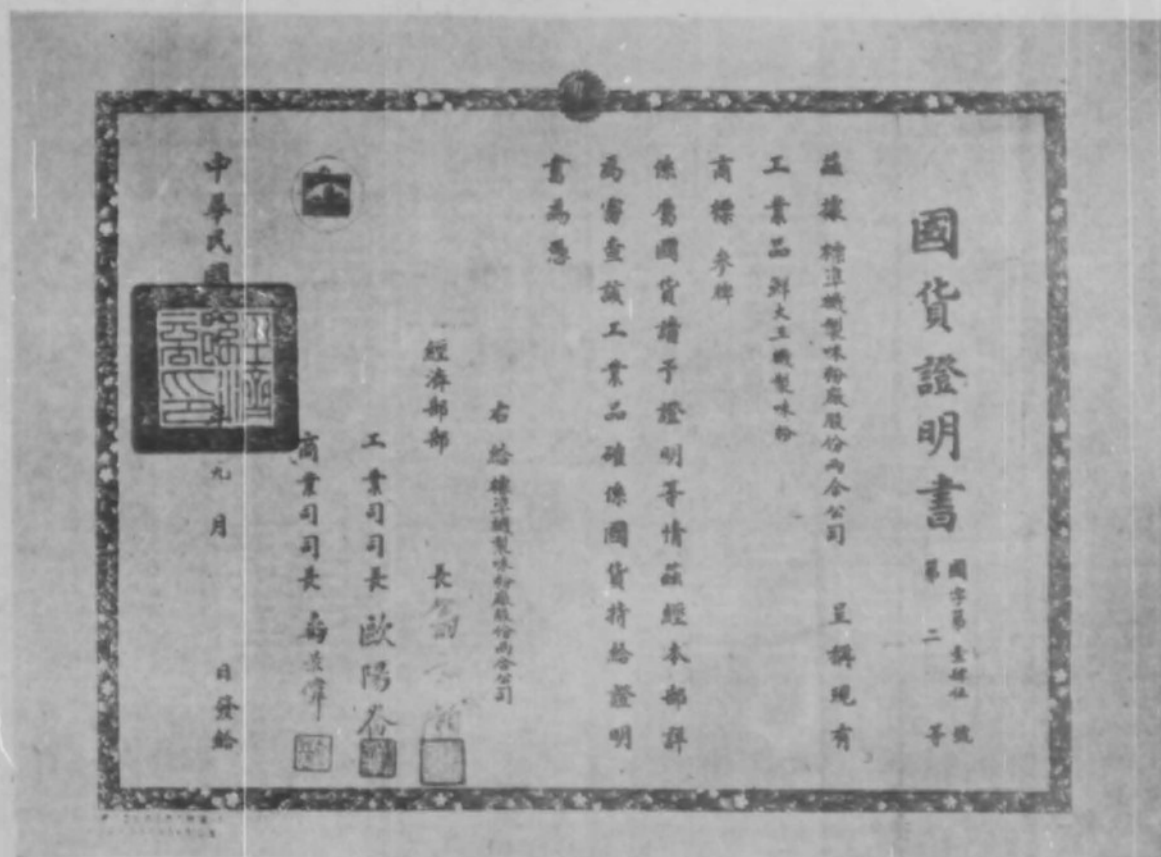 國貨證明書
國字第壹 號
第二等
茲據標準機製味粉廠股份兩合公司 呈稱現有
工業品 大王機製味粉
商標
係屬國貨請予證明等情茲經本部詳
為審查該工業品確係國貨特給證明
書為憑
右給標準機製味粉廠股份兩合公司
經濟部部 長
工業司司長 歐陽
商業司司長
中華民國 年九月 日發給
經濟部印